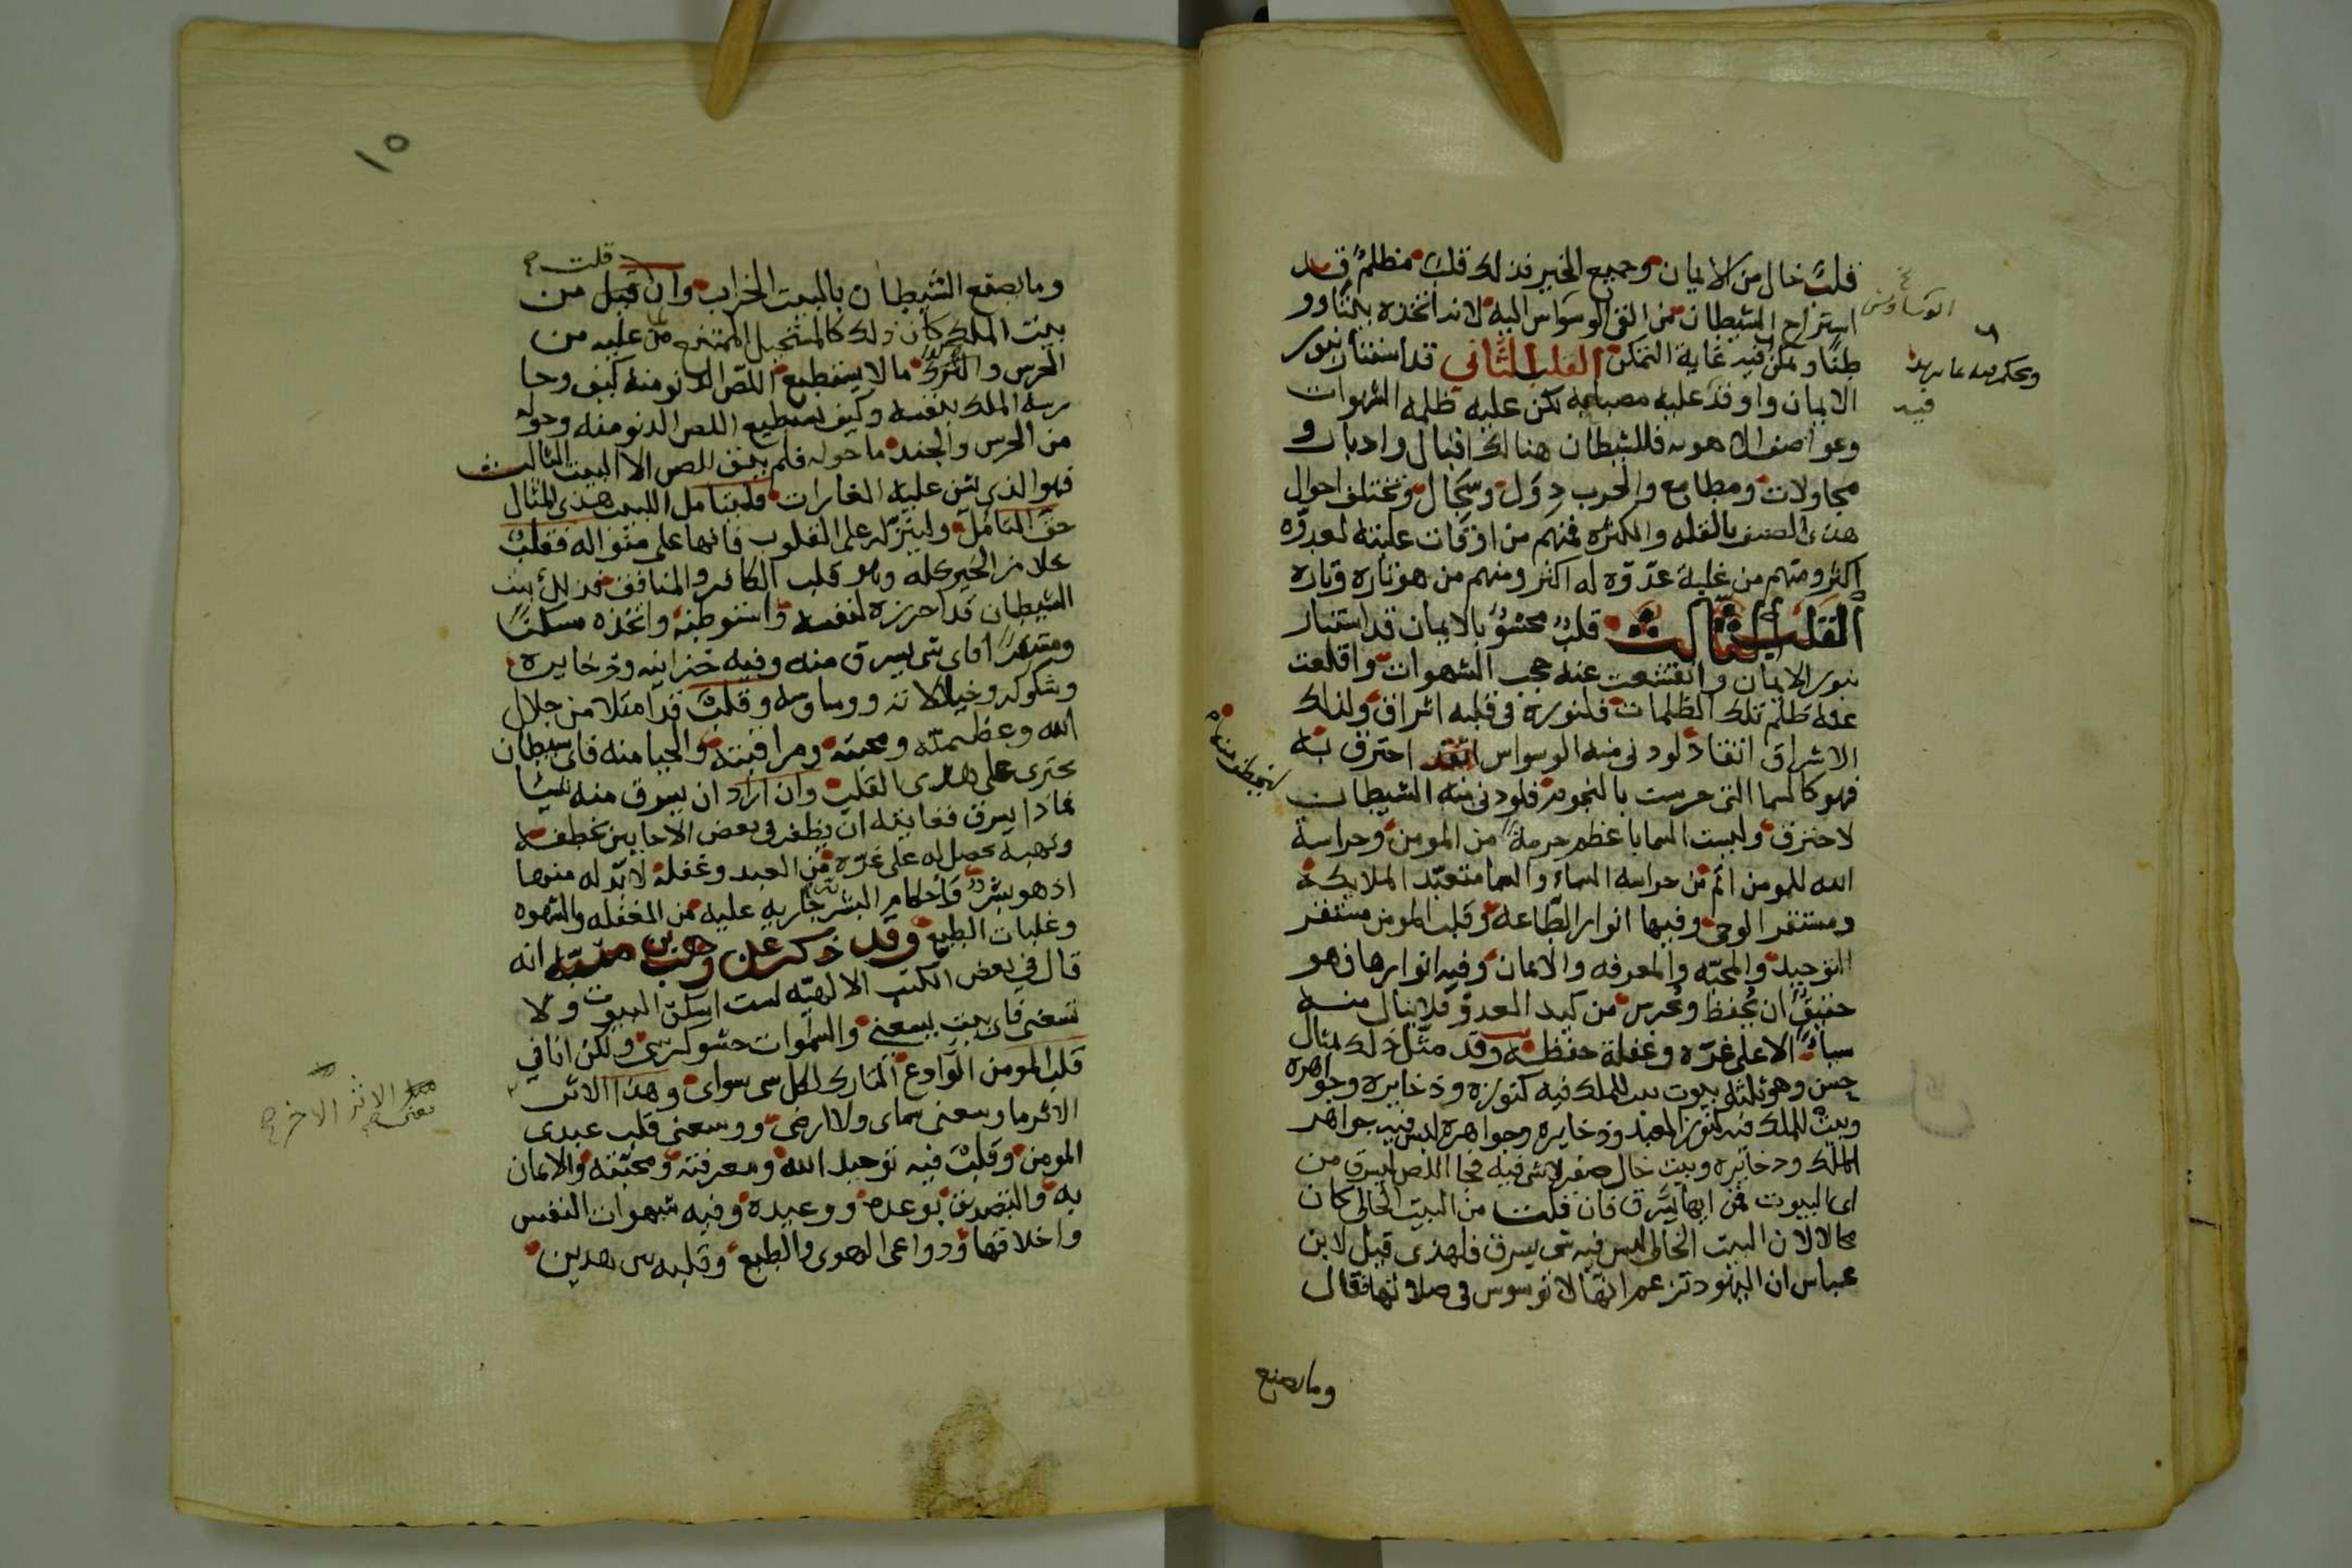 قلب خال من الايمان وجميع الخير فذلك قلب مظلم قد
استراح الشيطان من القا الوسواس اليه لانه اتخذه بيتا وو
طنا وتمكن فيه غاية التمكن القلب الثاني قد استنار بنور
الايمان واوقد عليه مصباحه لكن عليه ظلمه الشهوات
وعواصف الاهويه فللشيطان هنالك اقبال وادبار و
مجاولات ومطامع والحرب دول وسجال وتختلف احوال
هذى الصنف بالقله والكثره فمنهم من اوقات غلبته لعدوه
اكثر ومنهم من غلبة عدوه له اكثر ومنهم من هو تاره وتاره
القلب الثالث قلب محشو بالايمان قد استنار
بنور الايمان وانقشعت عنه حجب الشهوات واقلعت
عنه تلك الظلمات فلنوره في قلبه اشراق ولذلك
الاشراق اتقاد لو دنى منه الوسواس احترق به
فهو كالسما التى حرست بالنجوم فلو دنى منه الشيطان
لاحترق وليست السما باعظم حرمة من المومن وحراسة
الله للمومن اتم من حراسه السماء والسما متعبد الملايكة
ومستقر الوحي وفيها انوار الطاعه وقلب المومن مستقر
التوحيد والمحبه والمعرفه والايمان وفيه انوارها فهو
حقيق ان يحفظ ويحرس من كيد العدو فلا ينال منه
شياء الا على غره وغفلة خطفه وقد مثل ذلك بمثال
حسن وهو ثلثه بيوت بيت للملك فيه كنوزه وذخايره وجواهره
وبيت للملك فيه كنوز العبد وذخايره وجواهره ليس فيه جواهر
الملك وذخايره وبيت خال صفر لا شى فيه فجا اللص ليسرق من
اى البيوت فمن ايها يسرق فان قلت من البيت الخالى كان
محالا لان البيت الخالى ليس فيه شى يسرق فلهذى قيل لابن
عباس ان اليهود تزعم انها لا توسوس في صلاتها فقال
وما يصنع
الوساوس
ويحكم فيه بما يريد
فيه
وما يصنع الشيطان بالبيت الخراب وان قبل من
قلت
بيت الملك كان ذلك كالمستحيل الممتنع من عليه من
الحرس واليزك ما لا يستطيع اللص الدنو منه كيف وحا
رسه الملك بنفسه وكيف يستطيع اللص الدنو منه وحوله
من الحرس والجند ما حوله فلم يبق للص الا البيت الثالث
فهو الذى يشن عليه الغارات فليتامل اللبيب هذى المثال
حق التامل ولينزله على القلوب فانها على منواله فقلب
خلا من الخير كله وهو قلب الكافر والمنافق فذلك بيت
الشيطان قد احرزه لنفسه واستوطنه واتخذه مسكنا
ومستقرا فاى شى يسرق منه وفيه خزاينه وذخايره
وشكوكه وخيالاته ووساوسه وقلب قد امتلا من جلال
الله وعظمته ومحبته ومراقبته والحيا منه فاى شيطان
يجترى على هذى القلب وان اراد ان يسرق منه شيا
فماذا يسرق فغايته ان يظفر في بعض الاحايين بخطفة
ونهبه يحصل له على غره من العبد وغفلة لا بد له منها
اذ هو بشر واحكام البشر جاريه عليه من الغفله والشهوه
وغلبات الطبع وقد ذكر عن وهب بن منبه انه
قال في بعض الكتب الالهيه لست اسكن البيوت ولا
تسعنى فاى بيت يسعنى والسموات حشو كرسى ولكن انا في
قلب المومن الوادع التارك لكل شى سواى وهذا الاثر
الاثر ما وسعنى سماى ولا ارضى ووسعنى قلب عبدى
المومن وقلب فيه توحيد الله ومعرفته ومحبته والايمان
به والتصديق بوعده ووعيده وفيه شهوات النفس
واخلاقها ودواعى الهوى والطبع وقلبه بين هذين
معنى الاثر الاخر
١٥